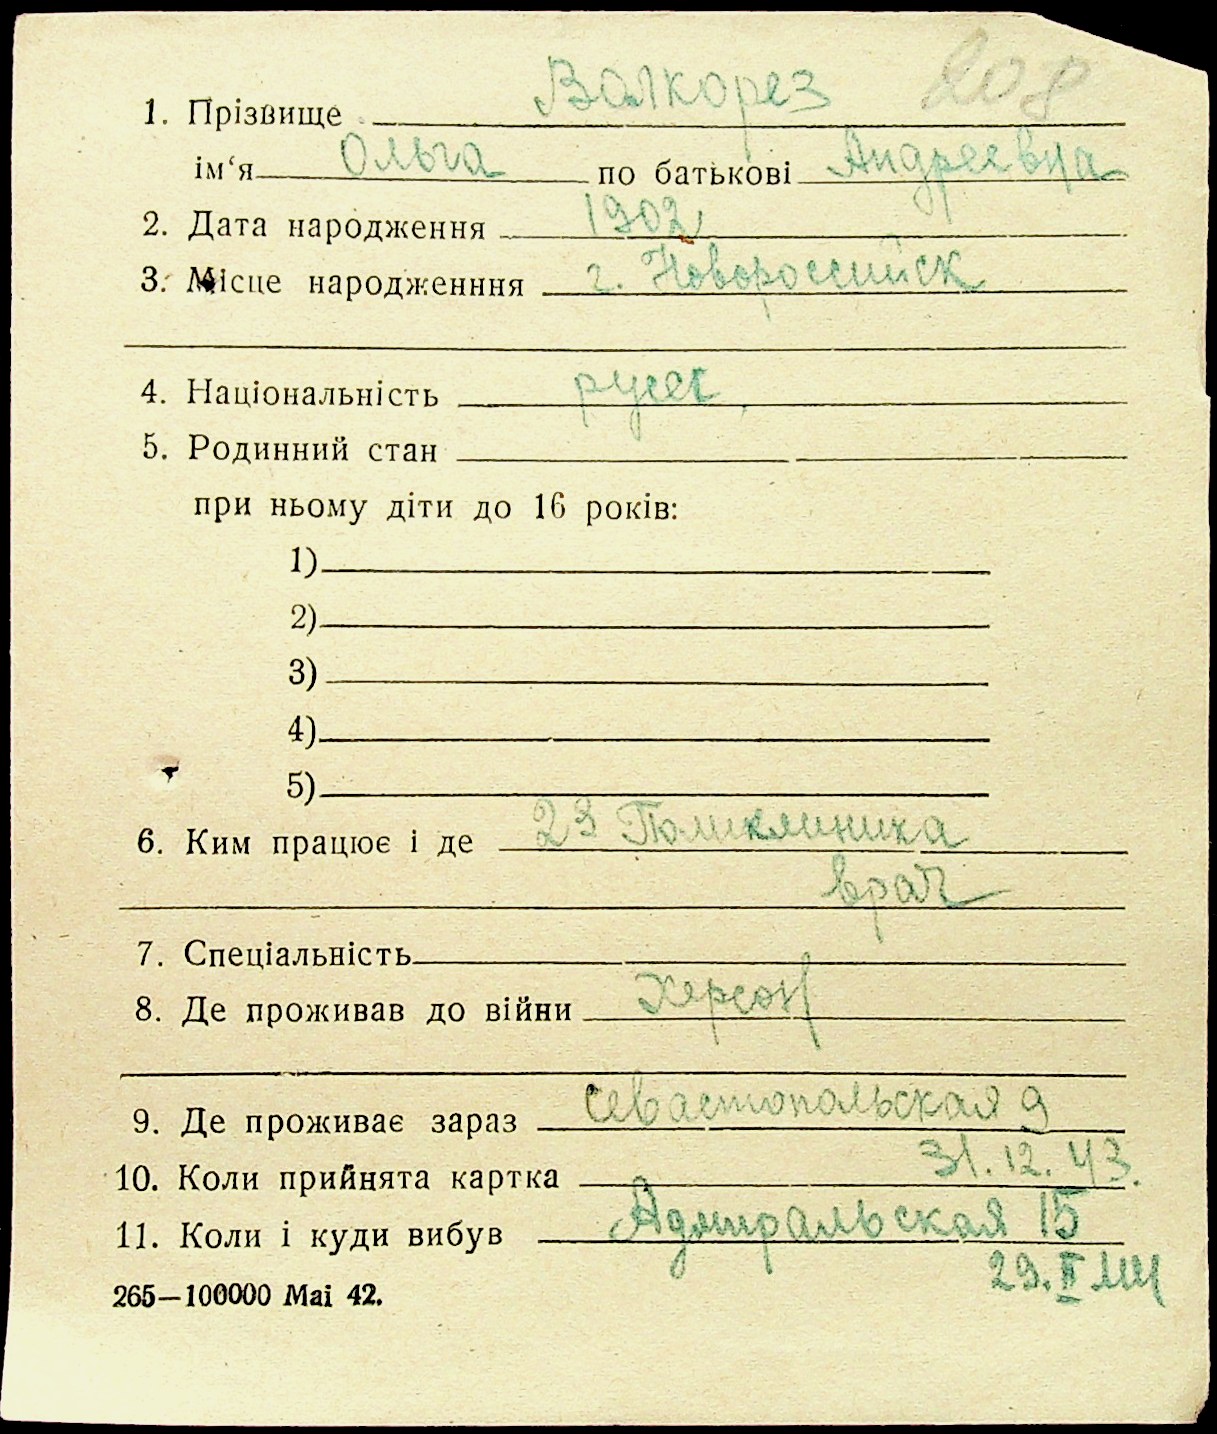 208
1. Прізвище Валкорез
ім‘я Ольга по батькові Андреевна
2. Дата народження 1902
3. Місце народженння г. Новороссийск
4. Національність русск
5. Родинний стан
при ньому діти до 16 років:
1)
2)
3)
4)
5)
6. Ким працює і де 23 Поликлиника
врач
7. Спеціальність
8. Де проживав до війни Херсон
9. Де проживає зараз Севастопольская 9
10. Коли прийнята картка 31.12.43.
11. Коли і куди вибув Адмиральская 15
29.II
265—100000 Mai 42.